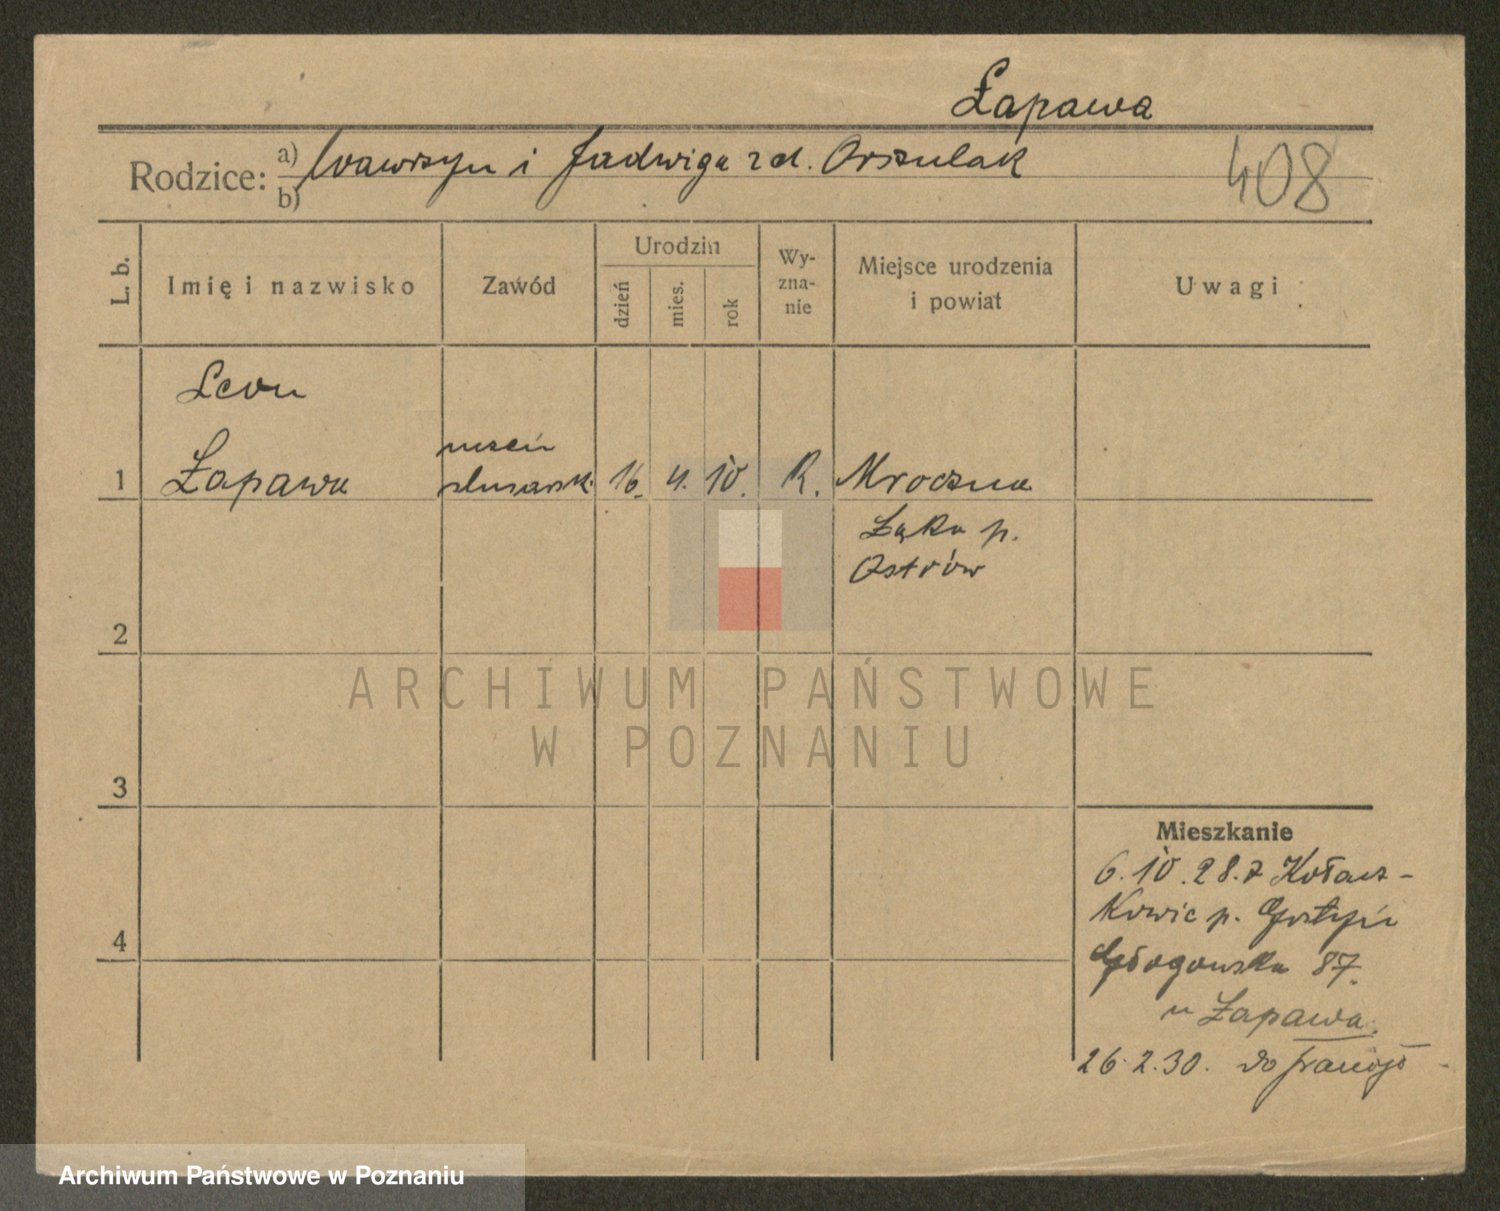 Łapawa
Rodzice: a) Wawrzyn i Jadwiga zd. Orszulak
b)
408
L. b.
Imię i nazwisko
Zawód
Urodzin
dzień
mies.
rok
Wy-
zna-
nie
Miejsce urodzenia
i powiat
Uwagi
Leon
1 Łapawa
uczeń
ślusarsk.
16. 4. 10. R. Mroczna
Łąka p.
Ostrów
2
3
4
ARCHIWUM PAŃSTWOWE
W POZNANIU
Mieszkanie
6.10.28. z Kołacz-
kowic p. Gostyń
Głogowska 87.
u Łapawa.
26.2.30. do
Archiwum Państwowe w Poznaniu